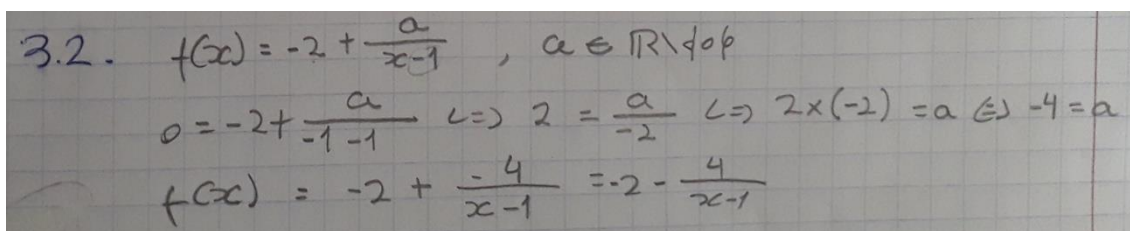 3.2. f(x) = -2 + a/(x-1) , a ∈ ℝ\{0}
0 = -2 + a/(-1-1) <=> 2 = a/(-2) <=> 2×(-2) = a <=> -4 = a
f(x) = -2 + (-4)/(x-1) = -2 - 4/(x-1)